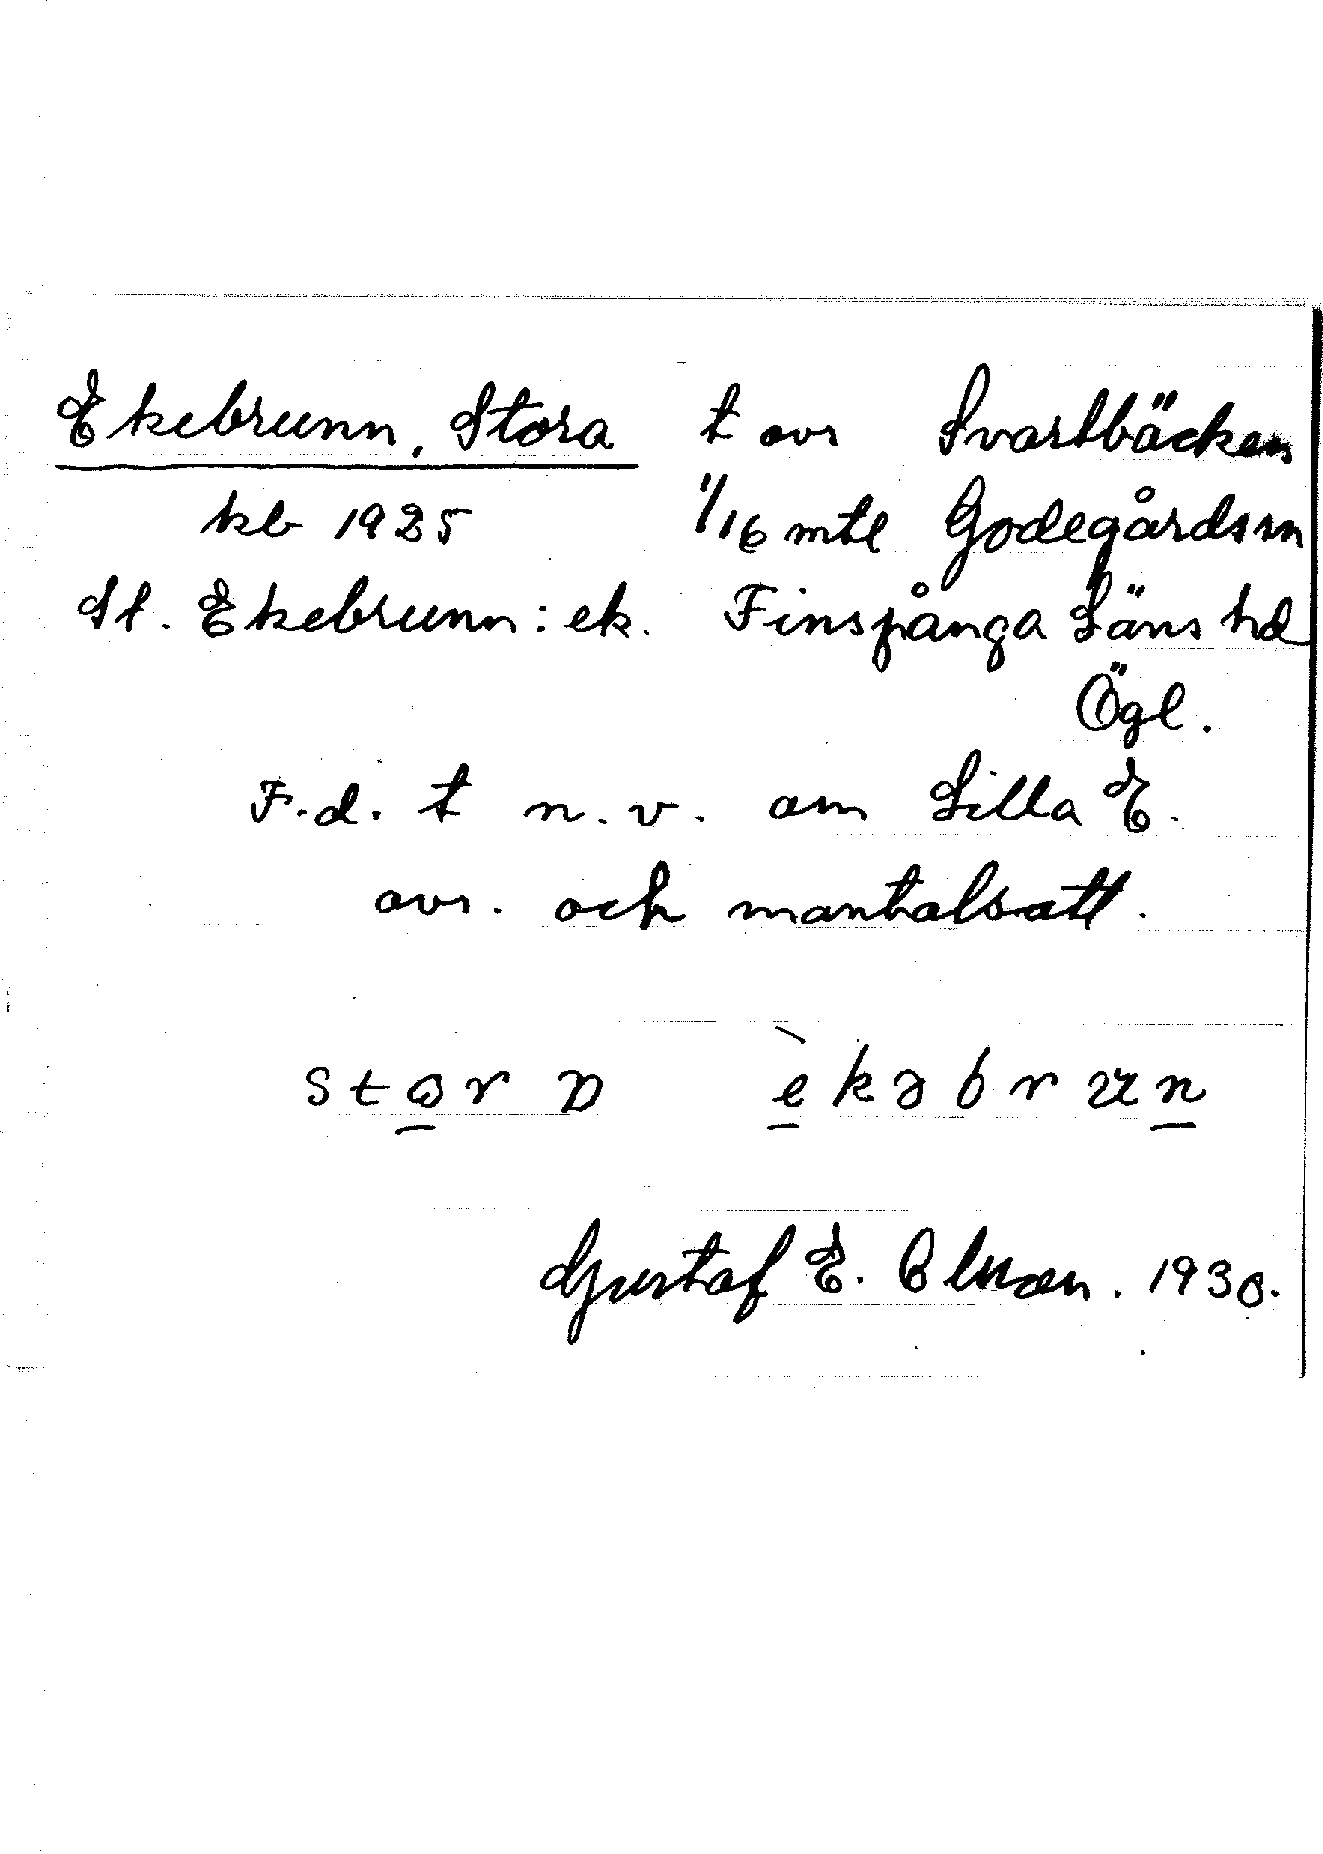 Ekebrunn, Stora t avs Svartbäcken
kb 1925 1/16 mtl Godegårds sn
St. Ekebrunn: ek. Finspånga Läns hd
Ögl.
F.d. t n.v. om Lilla E.
avs. och mantalsatt.
stɷrɒ èkəbrun
Gustaf E. 1930.